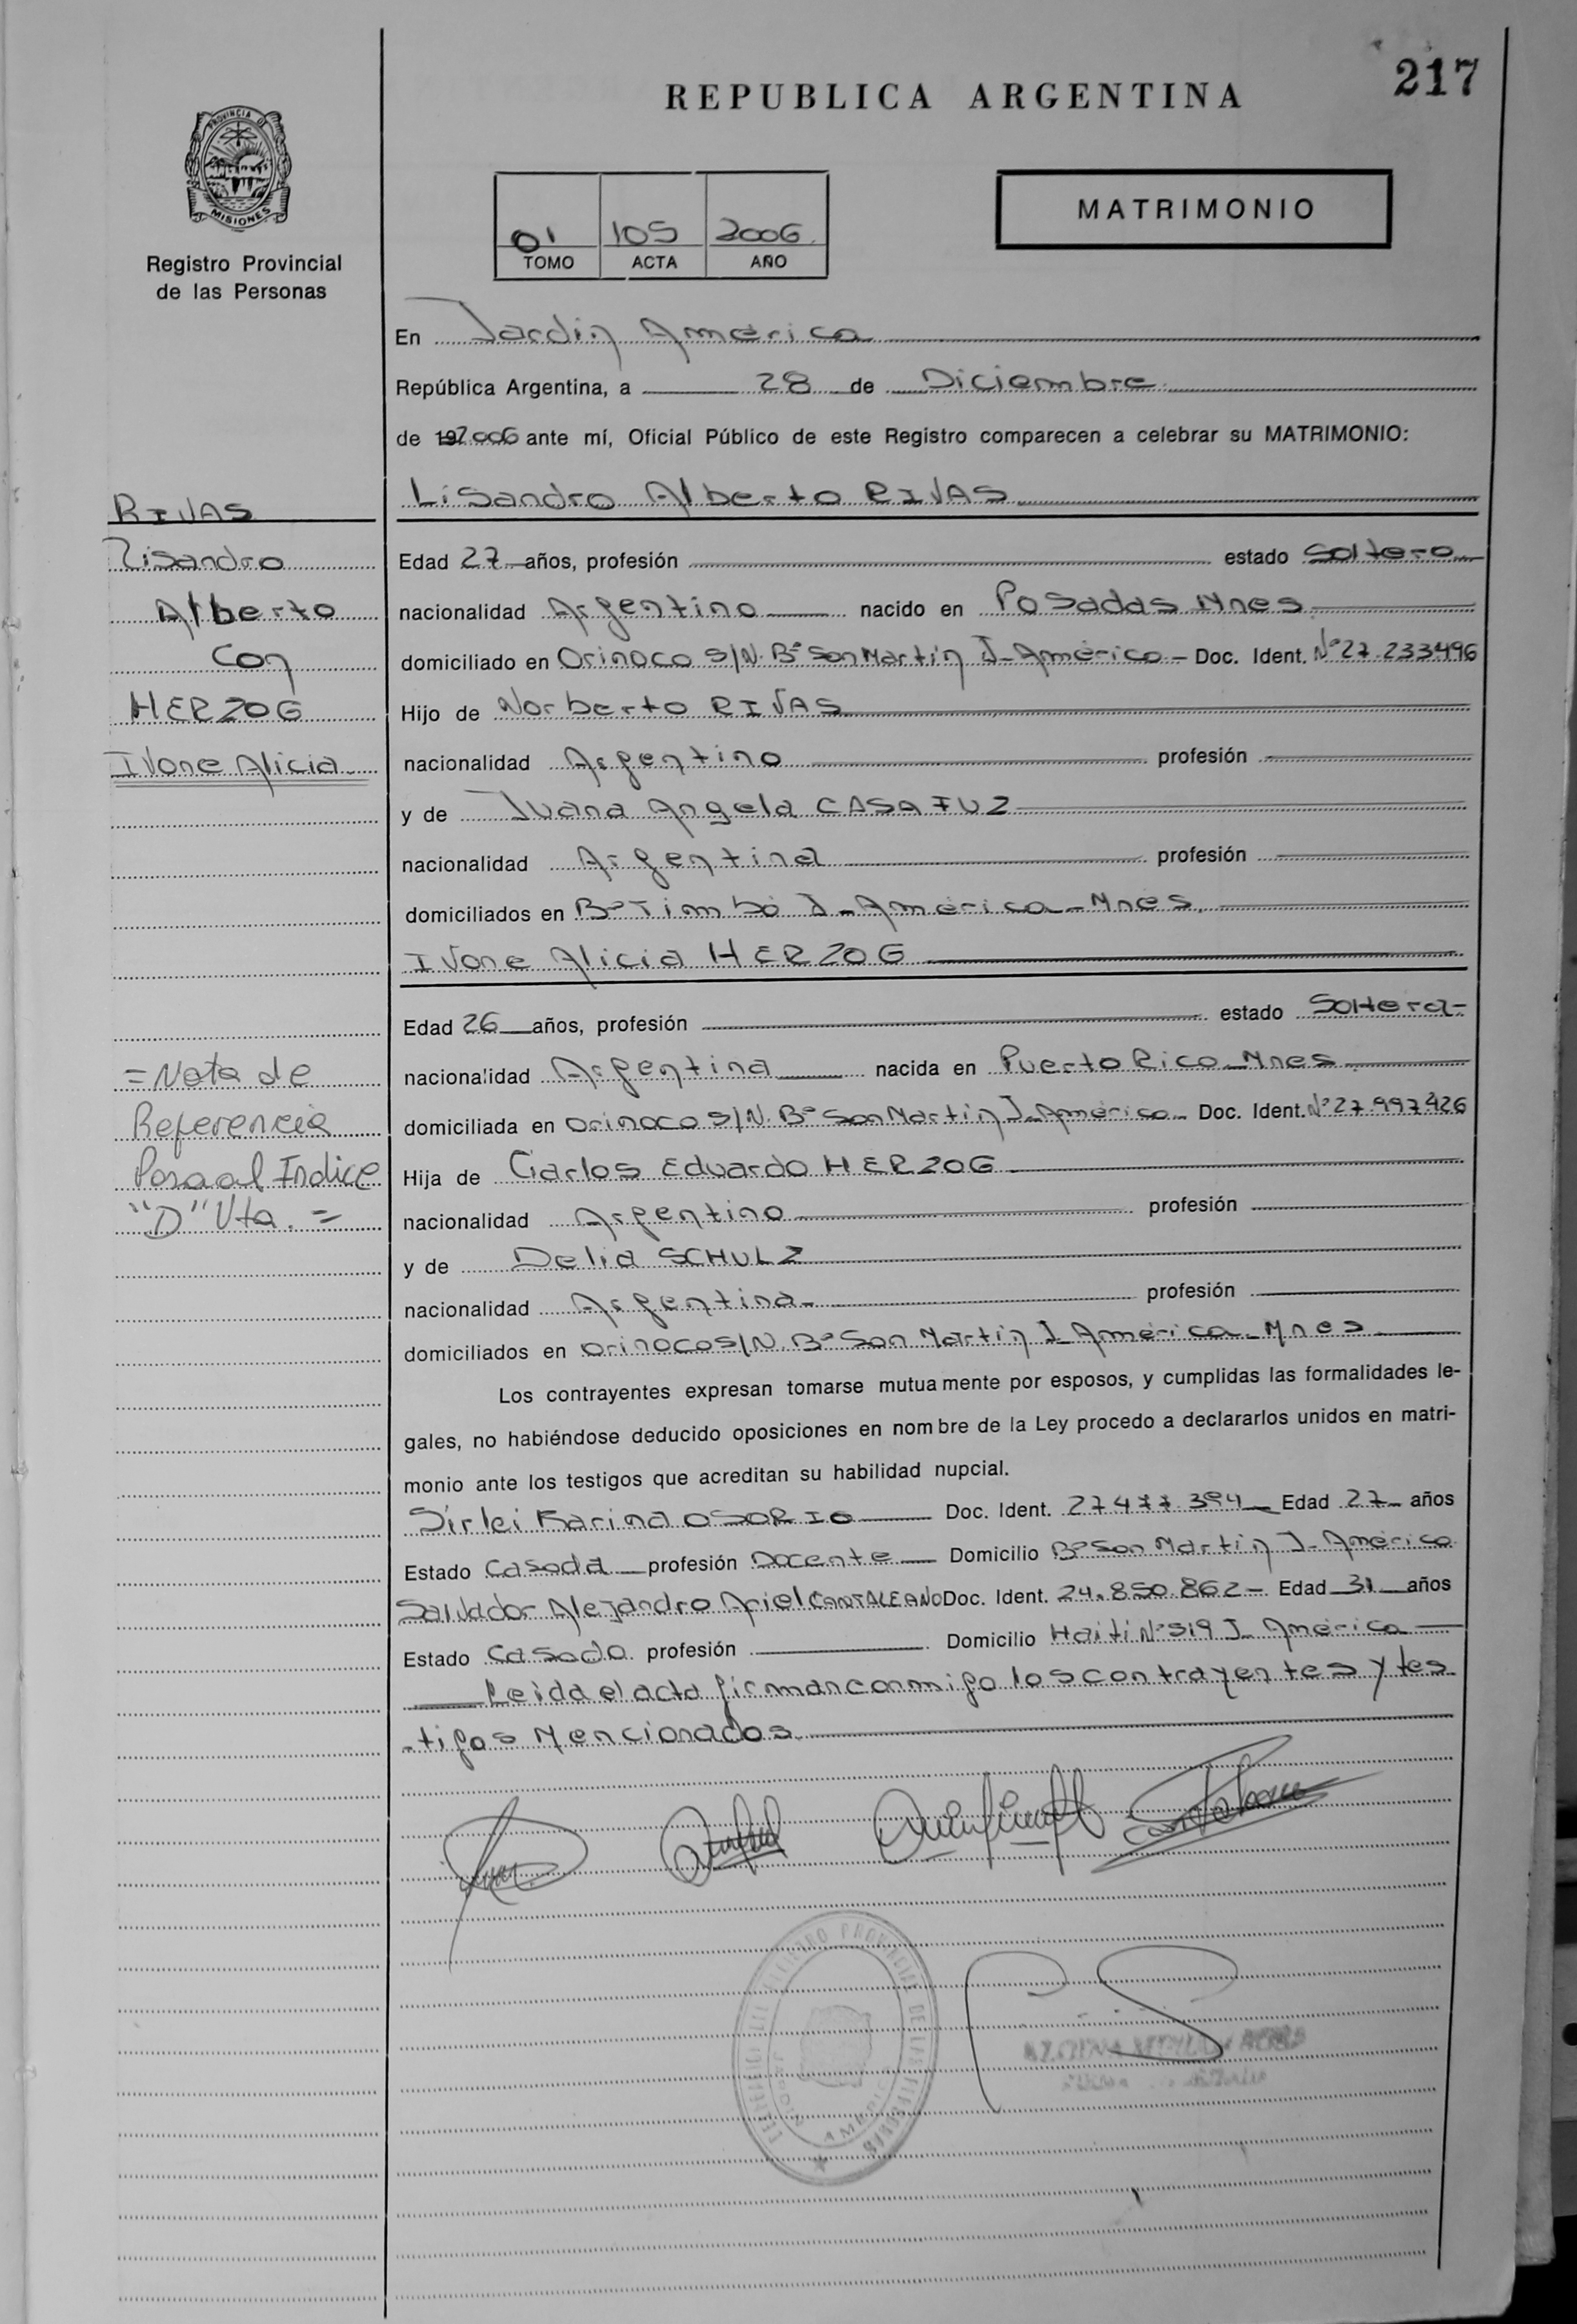 217
REPUBLICA ARGENTINA
PROVINCIA D
MISIONES
Registro Provincial
de las Personas
01 105 2006
TOMO ACTA AÑO
MATRIMONIO
En Jardin América
República Argentina, a 28 de Diciembre
de 192006 ante mí, Oficial Público de este Registro comparecen a celebrar su MATRIMONIO:
Lisandro Alberto RIVAS
RIVAS
Lisandro
Alberto
Con
HERZOG
Ivone Alicia
Edad 27 años, profesión estado Soltero
nacionalidad Argentino nacido en Posadas Mnes
domiciliado en Orinoco S/N. Bº San Martín J-América - Doc. Ident. Nº 27.233.496
Hijo de Norberto RIVAS
nacionalidad Argentino profesión
y de Juana Angela CASAFUZ
nacionalidad Argentina profesión
domiciliados en Bº Timbó J-América-Mnes.
Ivone Alicia HERZOG
Edad 26 años, profesión estado Soltera-
nacionalidad Argentina nacida en Puerto Rico-Mnes
domiciliada en Orinoco S/N. Bº San Martín J-América- Doc. Ident. Nº 27.997.426
Hija de Carlos Eduardo HERZOG
nacionalidad Argentino profesión
y de Delia SCHULZ
nacionalidad Argentina- profesión
domiciliados en Orinoco S/N. Bº San Martín J-América-Mnes
=Nota de
Referencia
Pasa al Indice
"D" Vta. =
Los contrayentes expresan tomarse mutuamente por esposos, y cumplidas las formalidades le-
gales, no habiéndose deducido oposiciones en nombre de la Ley procedo a declararlos unidos en matri-
monio ante los testigos que acreditan su habilidad nupcial.
Sirlei Karina OSORIO Doc. Ident. 27.477.394 Edad 27 años
Estado Casada profesión Docente Domicilio Bº San Martín J-América
Salvador Alejandro Ariel CANTALEANO Doc. Ident. 24.850.862- Edad 31 años
Estado Casado profesión Domicilio Haití Nº 519 J-América
Leida el acta firman conmigo los contrayentes y tes
tigos Mencionados.
REGISTRO PROVINCIAL DE LAS PERSONAS